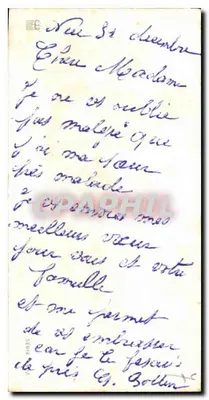 Nice 31 decembre
Chere Madam
Je ne vs oublie
pas malgré que
j'ai ma sœur
très malade
je vs envoies mes
meilleurs vœux
pour vous et votre
famille
et me permet
de vs embrasser
car je le fesais
de près G.